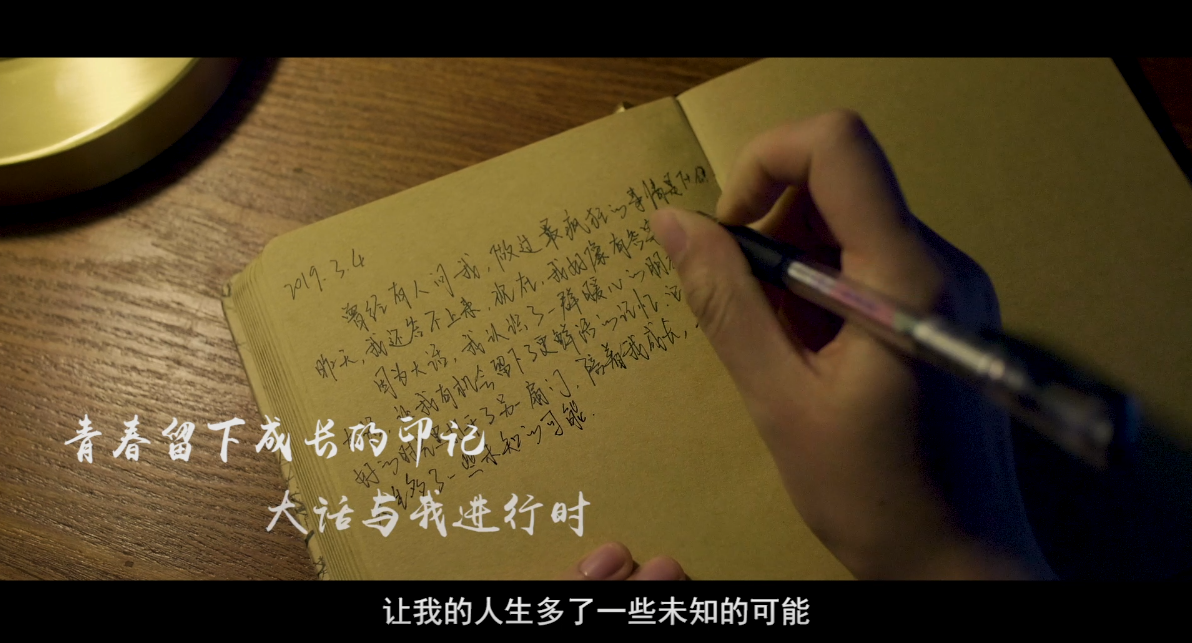 2019.3.4
曾经有人问我，做过最疯狂的事情是什么
昨天，我还答不上来，现在，我好像有答案
因为大话，我认识了一群暖心的朋
让我有机会留下了更鲜活的记忆
了另一扇门，陪着我成长，
多了一些未知的可能.
青春留下成长的印记
大话与我进行时
让我的人生多了一些未知的可能